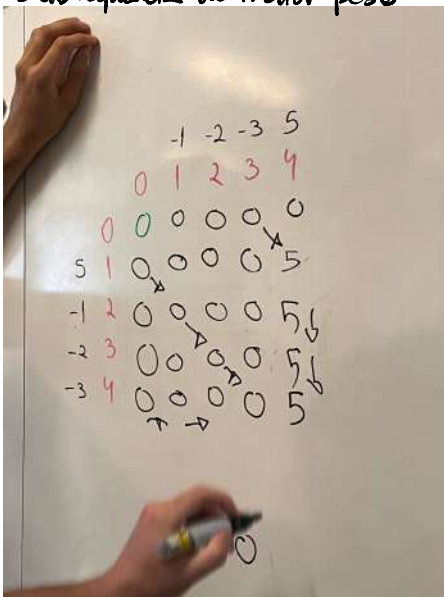 -1 -2 -3 5
0 1 2 3 4
0 0 0 0 0 0
5 1 0 0 0 0 5
-1 2 0 0 0 0 5
-2 3 0 0 0 0 5
-3 4 0 0 0 0 5
0